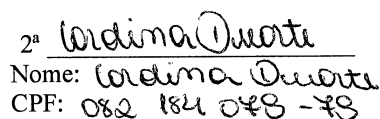 2ª Cordina Duarte
Nome: Cordina Duarte
CPF: 082 184 079-79